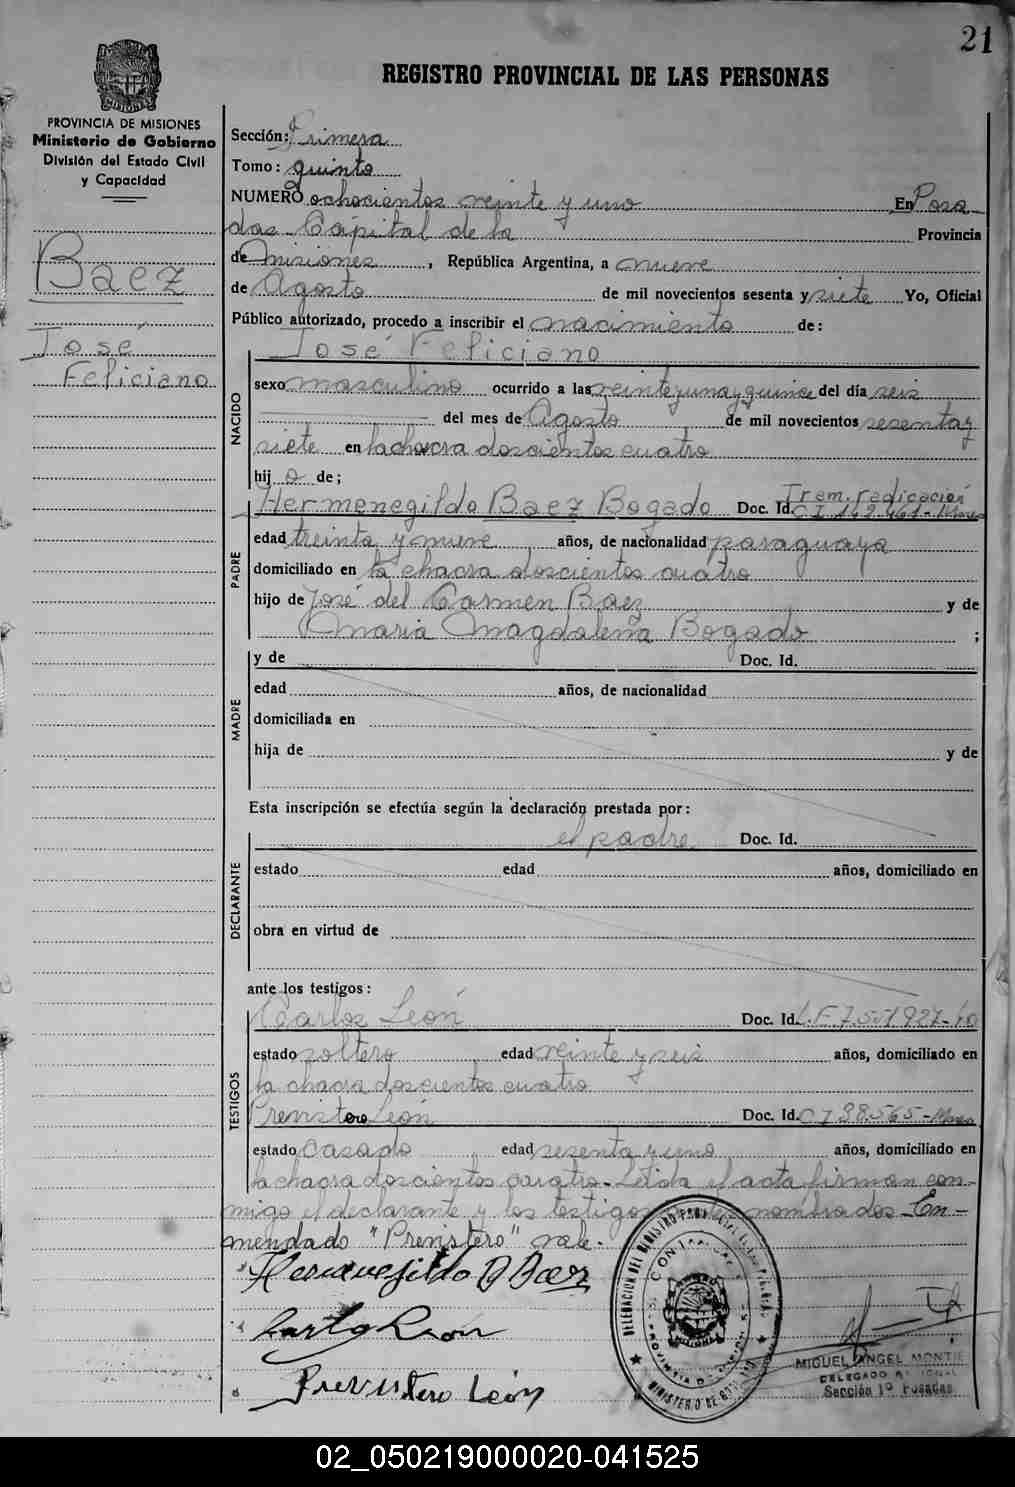 21
REGISTRO PROVINCIAL DE LAS PERSONAS
PROVINCIA DE MISIONES
Ministerio de Gobierno
División del Estado Civil
y Capacidad
Baez
José
Feliciano
Sección: Primera
Tomo: quinto
NUMERO ochocientos veinte y uno En Posa-
das Capital de la Provincia
de Misiones, República Argentina, a nueve
de Agosto de mil novecientos sesenta y siete Yo, Oficial
Público autorizado, procedo a inscribir el nacimiento de:
José Feliciano
NACIDO
sexo masculino ocurrido a las veinte y una y quince del día seis
del mes de Agosto de mil novecientos sesenta y
siete en la chacra doscientos cuatro
hijo de;
Hermenegildo Baez Bogado Doc. Id. Tram. radicación
C I 142.461 - Mnes
PADRE
edad treinta y nueve años, de nacionalidad paraguaya
domiciliado en la chacra doscientos cuatro
hijo de José del Carmen Baez y de
Maria Magdalena Bogado ;
MADRE
y de Doc. Id.
edad años, de nacionalidad
domiciliada en
hija de y de
Esta inscripción se efectúa según la declaración prestada por:
el padre Doc. Id.
DECLARANTE
estado edad años, domiciliado en
obra en virtud de
ante los testigos:
Carlos León Doc. Id. L.E. 7.551.927-
TESTIGOS
estado soltero edad veinte y seis años, domiciliado en
la chacra doscientos cuatro
Previstero León Doc. Id. C I 38.565 - Mnes
estado casado edad sesenta y uno años, domiciliado en
la chacra doscientos cuatro - Leída el acta firman con-
migo el declarante y los testigos nombrados - En-
mendado "Previstero" vale.-
Hermenejildo B Baez
Carlos León
Previstero León
DELEGACION DEL REGISTRO PROVINCIAL DE LAS PERSONAS
PROVINCIA DE MISIONES
MINISTERIO DE GOBIERNO
MIGUEL ANGEL MONTIE
DELEGADO
Sección 1º Posadas
02_050219000020-041525